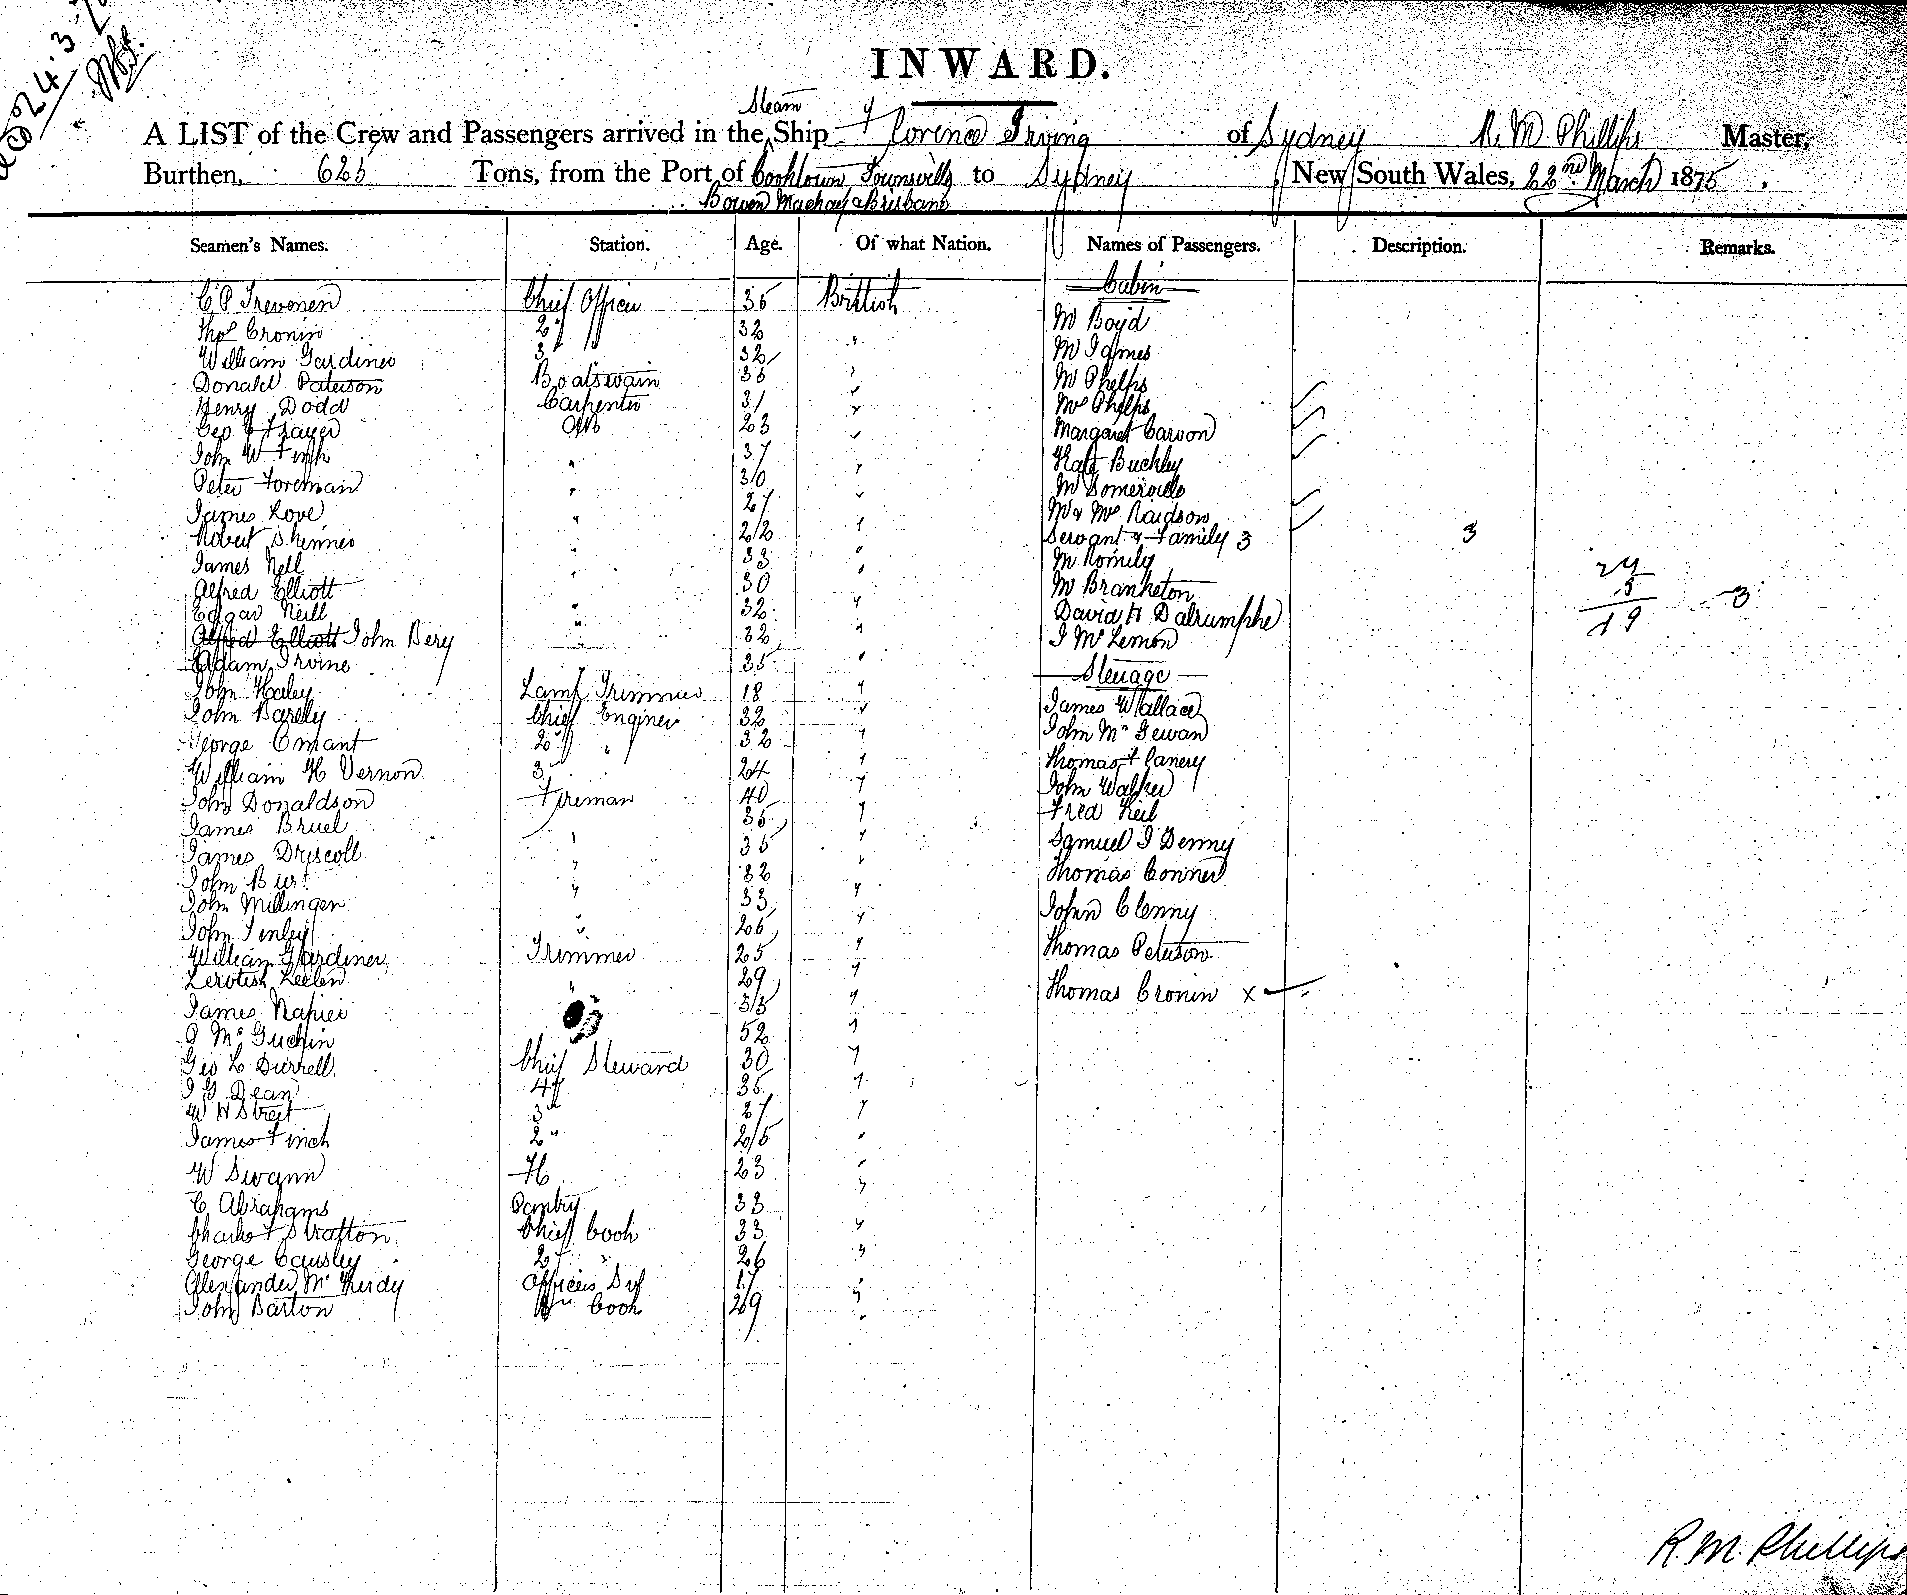 24.3.
INWARD.
Steam
A LIST of the Crew and Passengers arrived in the Ship Florence Irving of Sydney R. M Phillips Master,
Burthen, 625 Tons, from the Port of Cooktown Townsville to Sydney New South Wales, 22nd March 1875.
Bowen Mackay & Brisbane
Seamen's Names. Station. Age. Of what Nation. Names of Passengers. Description. Remarks.
Cabin
C P Trevonen Chief Officer 35 British
Thos Cronin 2d " 32 " Mr Boyd
William Gardiner 3 32 " Mr James
Donald Paterson Boatswain 35 " Mr Phelps
Henry Dodd Carpenter 31 " Mrs Phelps
Geo Frayer AB 23 " Margaret Carson
John W Finh " 37 " Kate Buckley
Peter Foreman " 30 " Mr Somerville
James Love " 27 " Mr & Mrs Naidson
Robert Skinner " 22 " Servant & Family 3 3
James Nell " 33 " Mr Romily
Alfred Elliott " 30 " Mr Branketon 24
Edgar Neill " 32 " David H Dalrumphe 5 3
John Bery " 32 " J McLemon 19
Adam Irvine 35 " Steerage
John Haley Lamp Trimmer 18 " James Wallace
John Bardly Chief Enginer 32 " John McGewan
George Omant 2d " 32 " Thomas F Canery
William H Vernon 3 24 " John Walker
John Donaldson Fireman 40 " Fred Keil
James Bruel " 35 "
James Driscoll " 35 " Samuel J Denny
John Bur " 32 " Thomas Conner
John Millingen " 33 " John Clenny
John Finley " 26 "
William Gardiner Trimmer 25 " Thomas Peterson
Keelen 29 "
James Napier " 33 " Thomas Cronin x
P McGuchin 52 "
Geo L Durrell Chief Steward 30 "
J G Dean 4th 35 "
W H Street 3rd 27 "
James Finch 2" 25 "
W Swann 23 "
C Abrahams Pantry 33 "
Charles F Stratton Chief Cook 33 "
George Causley 2d " 26 "
Alexander McKurdy Officers 17 "
John Barton Cook 29 "
R. M. Phillips